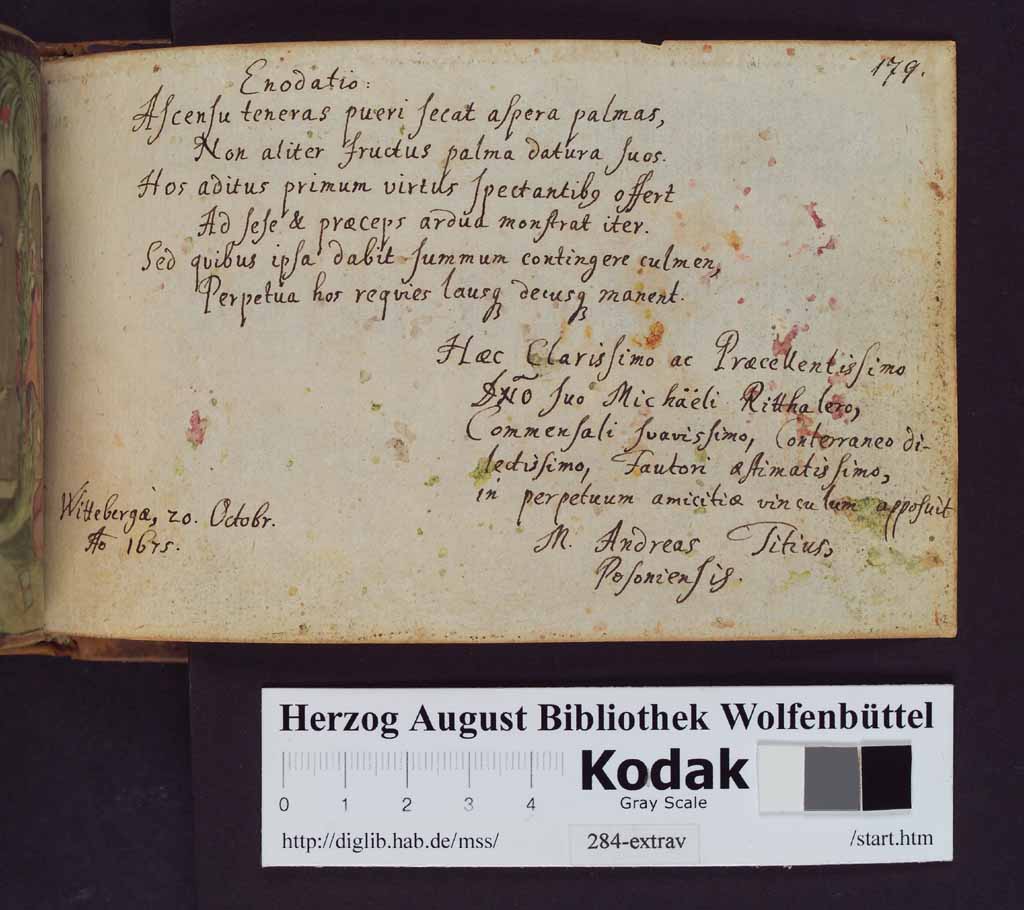 179.
Enodatio:
Aſcenſu teneras pueri ſecat aſpera palmas,
Non aliter fructus palma datura ſuos.
Hos aditus primum virtus ſpectantibꝰ offert
Ad ſeſe & præceps ardua monſtrat iter.
Sed quibus ipſa dabit ſummum contingere culmen,
Perpetua hos requies lausqꝫ decusqꝫ manent.
Hæc Clarisſimo ac Præcellentisſimo
Dn̄o ſuo Michaëli Ritthalero,
Commenſali ſuavisſimo, Conterraneo di-
lectisſimo, Fautori æſtimatisſimo,
in perpetuum amicitiæ vinculum appoſuit
M. Andreas Titius,
Poſonienſis.
Wittebergæ, 20. Octobr.
Ao 1675.
Herzog August Bibliothek Wolfenbüttel
Kodak
Gray Scale
0 1 2 3 4
http://diglib.hab.de/mss/ 284-extrav /start.htm